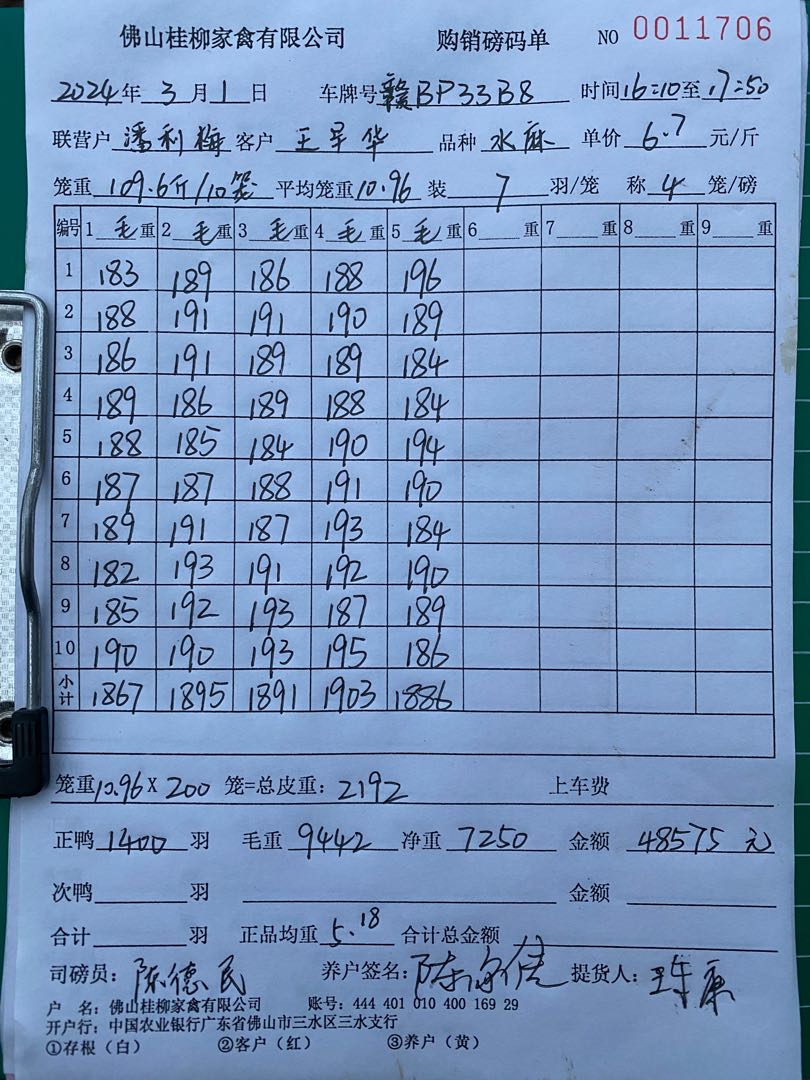 佛山桂柳家禽有限公司 购销磅码单 NO 0011706
2024年3月1日 车牌号赣BP33B8 时间16:10至17:50
联营户潘利梅客户王早华 品种水麻 单价6.7元/斤
笼重109.6斤/10笼 平均笼重10.96 装7羽/笼 称4笼/磅
编号 1毛重 2毛重 3毛重 4毛重 5毛重 6重 7重 8重 9重
1 183 189 186 188 196
2 188 191 191 190 189
3 186 191 189 189 184
4 189 186 189 188 184
5 188 185 184 190 194
6 187 187 188 191 190
7 189 191 187 193 184
8 182 193 191 192 190
9 185 192 193 187 189
10 190 190 193 195 186
小计 1867 1895 1891 1903 1886
笼重10.96X200笼=总皮重:2192 上车费
正鸭1400羽 毛重9442净重7250 金额48575元
次鸭 羽 金额
合计 羽 正品均重5.18 合计总金额
司磅员:陈德民 养户签名:陈 提货人:
户 名:佛山桂柳家禽有限公司 账号:444 401 010 400 169 29
开户行:中国农业银行广东省佛山市三水区三水支行
①存根(白) ②客户(红) ③养户(黄)